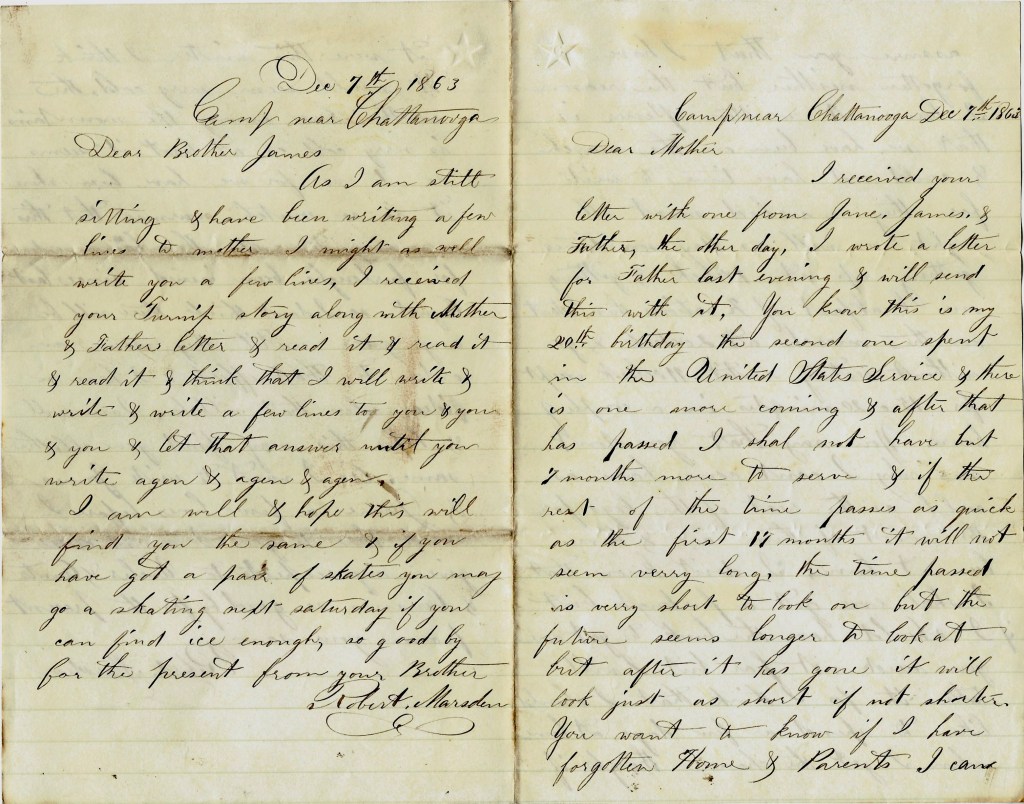 Dec 7th 1863
Camp near Chattanooga
Dear Brother James
As I am still
sitting & have been writing a few
lines to mother I might as well
write you a few lines, I received
your Turnip story along with Mother
& Father letter & read it & read it
& read it & think that I will write &
write & write a few lines to you & you
& you & let that answer until you
write agen & agen & agen.
I am will & hope this will
find you the same & if you
have got a pair of skates you may
go a skating next saturday if you
can find ice enough, so good by
for the present from your Brother
Robert. Marsden
Camp near Chattanooga Dec 7th 1863
Dear Mother
I received your
letter with one from Jane. James. &
Father, the other day, I wrote a letter
for Father last evening & will send
this with it, You know this is my
20th birthday the second one spent
in the United States Service & there
is one more coming & after that
has passed I shal not have but
7 months more to serve & if the
rest of the time passes as quick
as the first 17 months it will not
seem verry long, the time passed
is verry short to look on but the
future seems longer to look at
but after it has gone it will
look just as short if not shorter.
You want to know if I have
forgotten Home & Parents I can